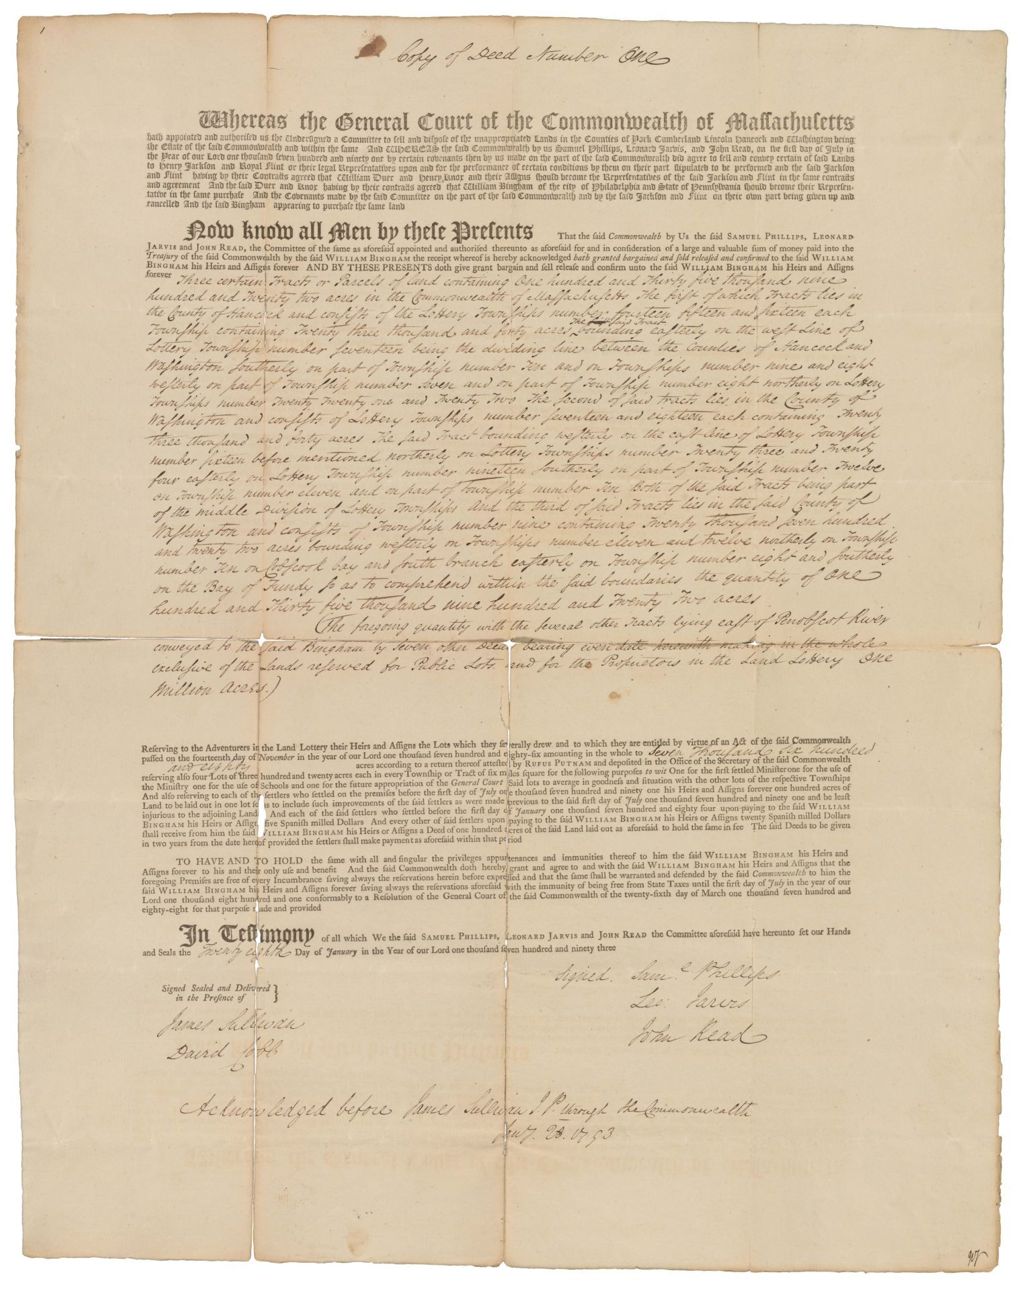 Copy of Deed Number One
Whereas the General Court of the Commonwealth of Massachusetts
hath appointed and authorised us the Undersign'd a Committee to sell and dispose of the unappropriated Lands in the Counties of York Cumberland Lincoln Hancock and Washington being
the Estate of the said Commonwealth and within the same And WHEREAS the said Commonwealth by us Samuel Phillips, Leonard Jarvis, and John Read, on the first day of July in
the Year of our Lord one thousand seven hundred and ninety one by certain covenants then by us made on the part of the said Commonwealth did agree to sell and convey certain of said Lands
to Henry Jackson and Royal Flint or their legal Representatives upon and for the performance of certain conditions by them on their part stipulated to be performed and the said Jackson
and Flint having by their Contracts agreed that William Duer and Henry Knox and their Assigns should become the Representatives of the said Jackson and Flint in the same contracts
and agreement And the said Duer and Knox having by their contracts agreed that William Bingham of the city of Philadelphia and State of Pennsylvania should become their Represen-
tative in the same purchase And the Covenants made by the said Committee on the part of the said Commonwealth and by the said Jackson and Flint on their own part being given up and
cancelled And the said Bingham appearing to purchase the same land
Now know all Men by these Presents That the said Commonwealth by Us the said SAMUEL PHILLIPS, LEONARD
JARVIS and JOHN READ, the Committee of the same as aforesaid appointed and authorised thereunto as aforesaid for and in consideration of a large and valuable sum of money paid into the
Treasury of the said Commonwealth by the said WILLIAM BINGHAM the receipt whereof is hereby acknowledged hath granted bargained and sold released and confirmed to the said WILLIAM
BINGHAM his Heirs and Assigns forever AND BY THESE PRESENTS doth give grant bargain and sell release and confirm unto the said WILLIAM BINGHAM his Heirs and Assigns
forever Three certain Tracts or Parcels of Land containing One hundred and Thirty five thousand nine
hundred and Twenty two acres in the Commonwealth of Massachusetts The first of which Tracts lies in
the County of Hancock and consists of the Lottery Townships number fourteen fifteen and sixteen each
Township containing Twenty three thousand and forty acres The said Tract bounding easterly on the west Line of
Lottery Township number seventeen being the dividing line between the Counties of Hancock and
Washington southerly on part of Township number Ten and on Townships number nine and eight
westerly on part of Township number seven and on part of Township number eight northerly on Lottery
Townships number Twenty Twenty one and Twenty Two The second of said tracts lies in the County of
Washington and consists of Lottery Townships number seventeen and eighteen each containing Twenty
three thousand and forty acres The said Tract bounding westerly on the east line of Lottery Township
number sixteen before mentioned northerly on Lottery Townships number Twenty three and Twenty
four easterly on Lottery Township number nineteen southerly on part of Township number Twelve
on Township number eleven and on part of Township number Ten Both of the said Tracts being part
of the middle Division of Lottery Townships and the third of said Tracts lies in the said County of
Washington and consists of Township number nine containing Twenty thousand seven hundred
and twenty two acres bounding westerly on Townships number eleven and twelve northerly on Township
number Ten on Cobscook bay and south branch easterly on Township number eight and southerly
on the Bay of Fundy so as to comprehend within the said boundaries the quantity of One
hundred and Thirty five thousand nine hundred and Twenty Two acres
(The foregoing quantity with the several other Tracts lying east of Penobscot River
conveyed to the said Bingham by seven other Deeds bearing even date herewith making in the whole
exclusive of the Lands reserved for Public Lots and for the Proprietors in the Land Lottery One
Million Acres.)
Reserving to the Adventurers in the Land Lottery their Heirs and Assigns the Lots which they severally drew and to which they are entitled by virtue of an Act of the said Commonwealth
passed on the fourteenth day of November in the year of our Lord one thousand seven hundred and eighty-six amounting in the whole to Seven Thousand six hundred
and eighty acres according to a return thereof attested by RUFUS PUTNAM and deposited in the Office of the Secretary of the said Commonwealth
reserving also four Lots of three hundred and twenty acres each in every Township or Tract of six miles square for the following purposes to wit One for the first settled Minister one for the use of
the Ministry one for the use of Schools and one for the future appropriation of the General Court Said lots to average in goodness and situation with the other lots of the respective Townships
And also reserving to each of the settlers who settled on the premises before the first day of July one thousand seven hundred and ninety one his Heirs and Assigns forever one hundred acres of
Land to be laid out in one lot so as to include such improvements of the said settlers as were made previous to the said first day of July one thousand seven hundred and ninety one and be least
injurious to the adjoining Lands And each of the said settlers who settled before the first day of January one thousand seven hundred and eighty four upon paying to the said WILLIAM
BINGHAM his Heirs or Assigns five Spanish milled Dollars And every other of said settlers upon paying to the said WILLIAM BINGHAM his Heirs or Assigns twenty Spanish milled Dollars
shall receive from him the said WILLIAM BINGHAM his Heirs or Assigns a Deed of one hundred acres of the said Land laid out as aforesaid to hold the same in fee The said Deeds to be given
in two years from the date hereof provided the settlers shall make payment as aforesaid within that period
TO HAVE AND TO HOLD the same with all and singular the privileges appurtenances and immunities thereof to him the said WILLIAM BINGHAM his Heirs and
Assigns forever to his and their only use and benefit And the said Commonwealth doth hereby grant and agree to and with the said WILLIAM BINGHAM his Heirs and Assigns that the
foregoing Premises are free of every Incumbrance saving always the reservations herein before expressed and that the same shall be warranted and defended by the said Commonwealth to him the
said WILLIAM BINGHAM his Heirs and Assigns forever saving always the reservations aforesaid with the immunity of being free from State Taxes until the first day of July in the year of our
Lord one thousand eight hundred and one conformably to a Resolution of the General Court of the said Commonwealth of the twenty-sixth day of March one thousand seven hundred and
eighty-eight for that purpose made and provided
In Testimony of all which We the said SAMUEL PHILLIPS, LEONARD JARVIS and JOHN READ the Committee aforesaid have hereunto set our Hands
and Seals the Twenty eighth Day of January in the Year of our Lord one thousand seven hundred and ninety three
Signed. Saml Phillips
Signed Sealed and Delivered
in the Presence of }
Leo: Jarvis
James Sullivan
John Read
David Cobb
Acknowledged before James Sullivan J. P. through the Commonwealth
Jany. 28. 1793